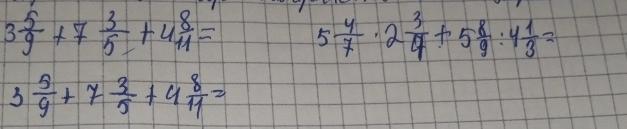 3 5/9 + 7 3/5 + 4 8/11 =
5 4/7 · 2 3/4 + 5 8/9 : 4 1/3 =
3 5/9 + 7 3/5 + 4 8/11 =